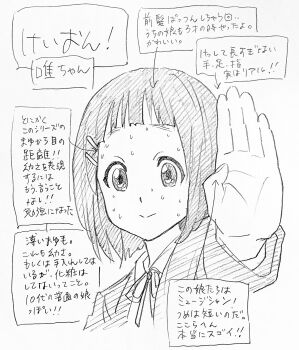 けいおん!
唯ちゃん
前髪ぱっつんしちゃう回..
うちの娘もうオの時やったよ。
かわいい。
けっして長すぎない
手、足、指
実はリアル!!
とにかく
このシリーズの
まゆから目の
距離!!
幼さを表現
するには
もう、言うこと
なし!!
勉強になった
薄いまゆも。
こんも幼さ。
もしくは手入れしては
いるが、化粧は
してないってこと。
10代の普通の娘
っぽい!!
この娘たちは
ミュージシャン!
つめは短いのだ。
ここらへん
本当にスゴイ!!